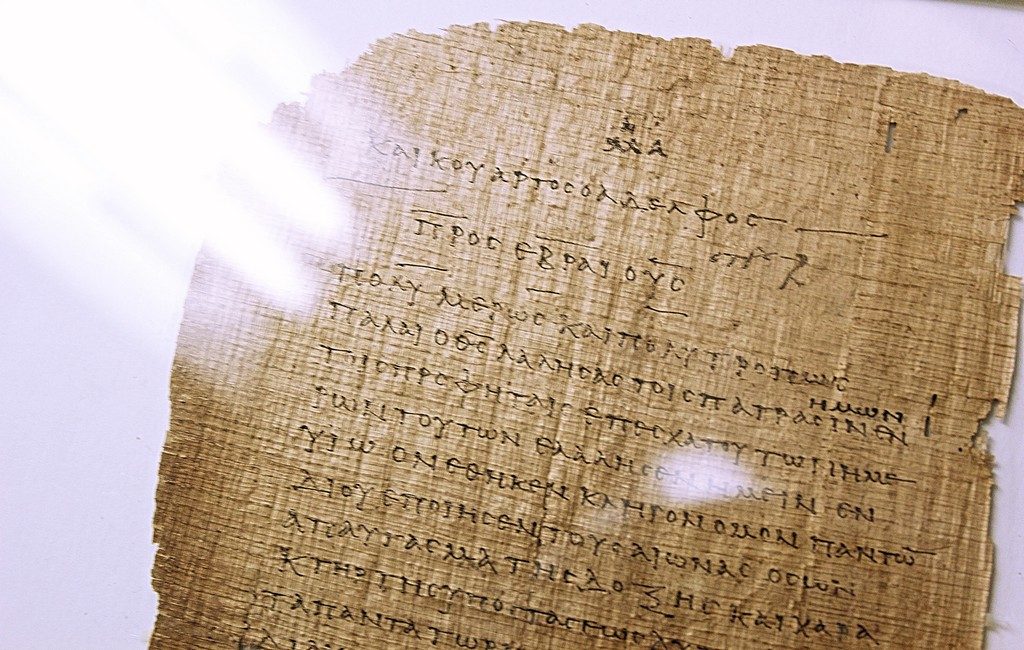 ΚΑΙ ΚΟΥΑΡΤΟϹ Ο ΑΔΕΛΦΟϹ
ΠΡΟϹ ΕΒΡΑΙΟΥϹ
ΠΟΛΥΜΕΡΩϹ ΚΑΙ ΠΟΛΥΤΡΟΠΩϹ
ΗΜΩΝ
ΠΑΛΑΙ Ο Θ̅Ϲ̅ ΛΑΛΗϹΑϹ ΤΟΙϹ ΠΑΤΡΑϹΙΝ ΕΝ
ΤΟΙϹ ΠΡΟΦΗΤΑΙϹ ΕΠ ΕϹΧΑΤΟΥ ΤΩΝ ΗΜΕ
ΡΩΝ ΤΟΥΤΩΝ ΕΛΑΛΗϹΕΝ ΗΜΕΙΝ ΕΝ
ΥΙΩ ΟΝ ΕΘΗΚΕΝ ΚΛΗΡΟΝΟΜΟΝ ΠΑΝΤΩ̅
ΔΙ ΟΥ ΕΠΟΙΗϹΕΝ ΤΟΥϹ ΑΙΩΝΑϹ ΟϹ ΩΝ
ΑΠΑΥΓΑϹΜΑ ΤΗϹ ΔΟΞΗϹ ΚΑΙ ΧΑΡΑ
ΚΤΗΡ ΤΗϹ ΥΠΟϹΤΑϹΕΩϹ
ΤΑ ΠΑΝΤΑ ΤΩ